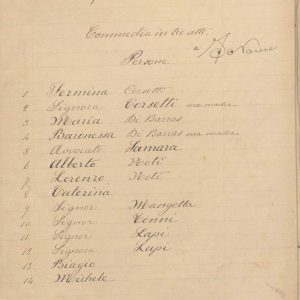 Commedia in tre atti.
Persone
1 Fermina Corsetti
2 Signora Corsetti sua madre
3 Maria De Barras
4 Baronessa De Barras sua madre
5 Avvocato Samara
6 Alberto Noti
7 Lorenzo Noti
8 Caterina
9 Signor Mangetta
10 Signor Tonni
11 Signor Lapi
12 Signora Lapi
13 Biagio
14 Michele